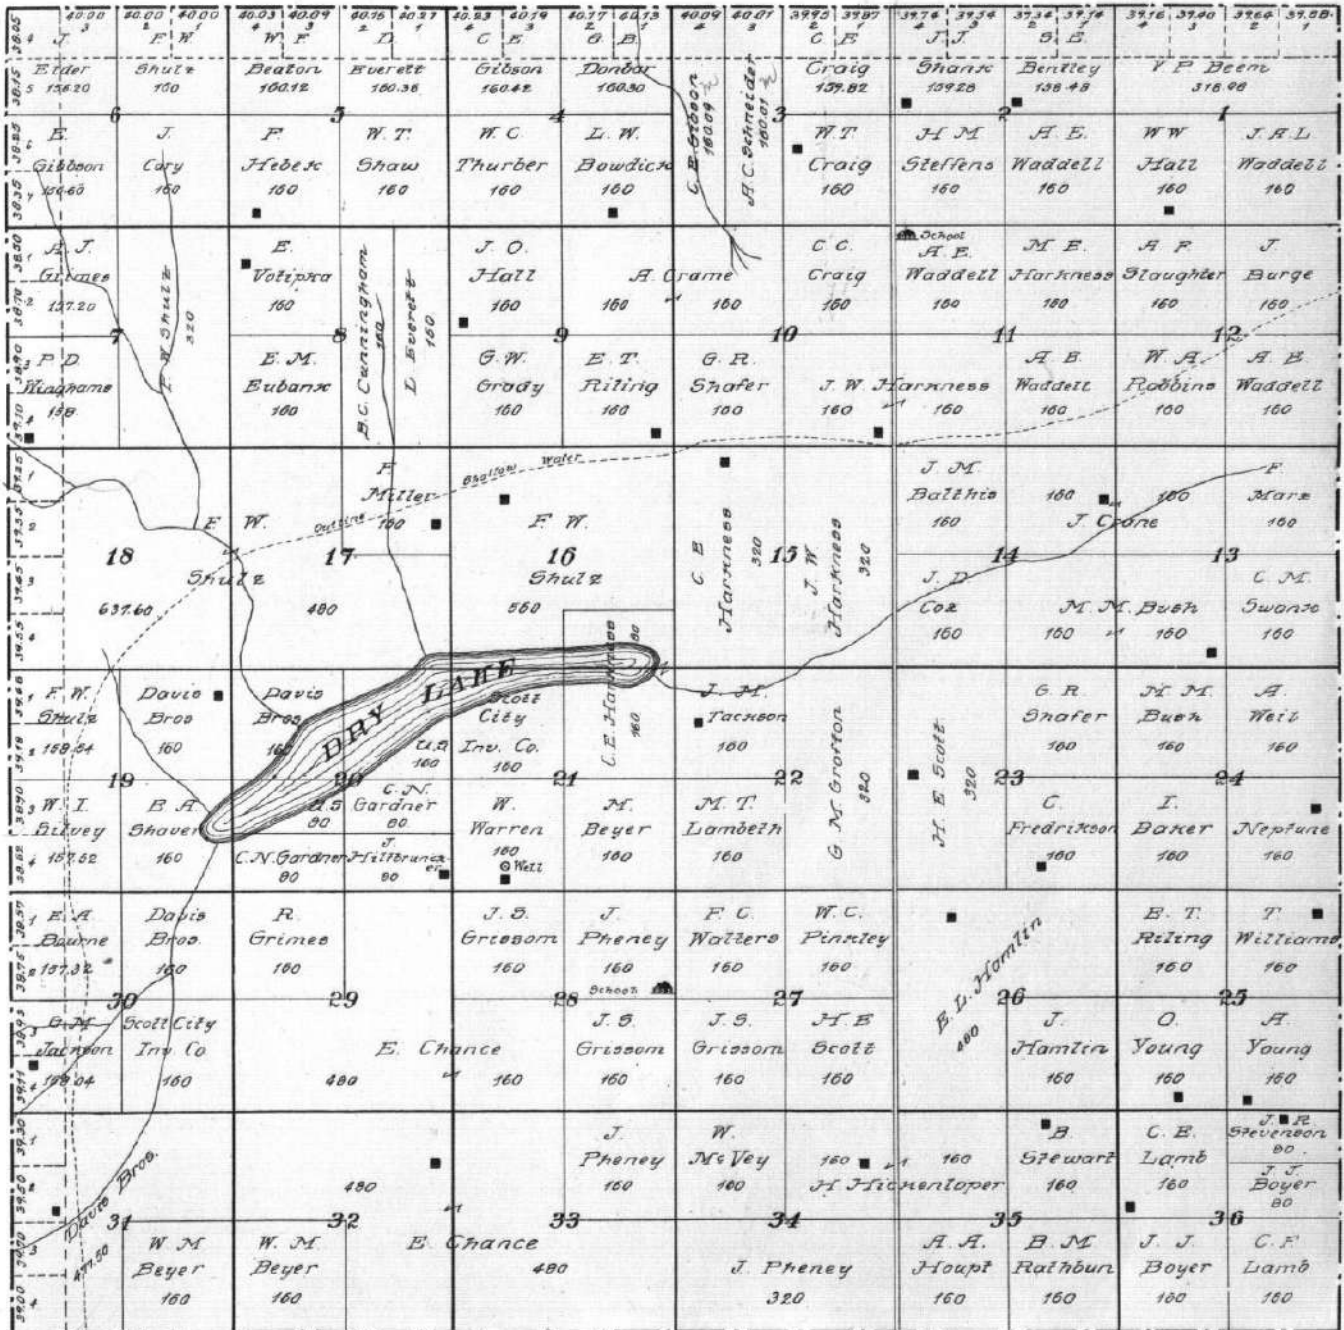 40.00 3
40.00 2
40.00 1
40.03 4
40.09 3
40.15 2
40.21 1
40.23 4
40.19 3
40.17 2
40.13 1
40.09 4
40.01 3
39.95 2
39.87 1
39.74 4
39.54 3
39.34 2
39.14 1
39.16 4
39.40 3
39.64 2
39.88 1
J.
Elder
156.20
F. W.
Shulz
160
W. F.
Beaton
160.12
D.
Everett
160.36
C. E.
Gibson
160.42
G. B.
Donbar
160.30
C. E. Gibson
160.09
A. C. Schneider
160.01
C. E.
Craig
159.82
J. J.
Shank
159.28
S. E.
Bentley
158.48
V. P. Beem
318.08
6
5
4
3
1
E.
Gibbson
156.60
J.
Cory
160
F.
Hebek
160
W. T.
Shaw
160
W. C.
Thurber
160
L. W.
Bowdick
160
W. T.
Craig
160
H M
Steffens
160
A. E.
Waddell
160
W W
Hall
160
J. A. L
Waddell
160
A. J.
Grimes
157.20
F. W. Shulz
320
E.
Votipka
160
B. C. Cunningham
160
D. Everett
160
J. O.
Hall
160
A. Crame
160
160
C. C.
Craig
160
School
A. E.
Waddell
160
M. E.
Harkness
160
A F
Slaughter
160
J.
Burge
160
7
8
9
10
11
12
P. D.
Winghams
158
E. M.
Eubank
160
G. W.
Grady
160
E. T.
Riling
160
G. R.
Shafer
160
J. W. Harkness
160
160
A. B.
Waddell
160
W. A.
Robbins
160
A. B.
Waddell
160
F.
Miller
160
Outline Shallow Water
F. W.
Shulz
637.60
480
F. W.
Shulz
560
C. E. Harkness
320
J. W. Harkness
320
J. M.
Balthis
160
160
160
J. Crone
F.
Mark
160
18
17
16
15
14
13
J. D.
Cox
160
M. M. Bush
160
160
C. M.
Swank
160
80
DRY LAKE
F. W.
Shulz
158.54
Davis
Bros
160
Davis
Bros
160
U.S.
160
Scott
City
Inv. Co.
160
C. E. Harkness
160
J. M.
Jackson
160
G. M. Grofton
320
M. E. Scott
320
G. R.
Shafer
160
M M.
Bush
160
A.
Weil
160
19
20
21
22
23
24
W. I.
Silvey
157.52
B A.
Shaver
160
U.S
80
C. N.
Gardner
80
W.
Warren
160
Well
M.
Beyer
160
M. T.
Lambeth
160
C.
Fredrikson
160
I.
Baker
160
Neptune
160
C. N. Gardner
80
J.
Hiltbrunck-
er
80
E. A.
Bourne
157.32
Davis
Bros.
160
R.
Grimes
160
J. S.
Grissom
160
J.
Pheney
160
School
F. C.
Walters
160
W. C.
Pinkley
160
B. L. Hamlin
480
E. T.
Riling
160
T.
Williams
160
30
29
28
27
26
25
G. M
Jackson
158.04
Scott City
Inv. Co
160
E. Chance
480
160
J. S.
Grissom
160
J. S.
Grissom
160
H E
Scott
160
J.
Hamlin
160
O.
Young
160
A.
Young
160
Davis Bros.
477.50
480
J.
Pheney
160
W.
McVey
160
160
160
H Hickenloper
B.
Stewart
160
C. E.
Lamb
160
J. R
Stevenson
80
J. J.
Boyer
80
31
32
33
34
35
36
W. M
Beyer
160
W. M.
Beyer
160
E. Chance
480
J. Pheney
320
A. A.
Houpt
160
B. M
Rathbun
160
J. J.
Boyer
160
C. F
Lamb
160